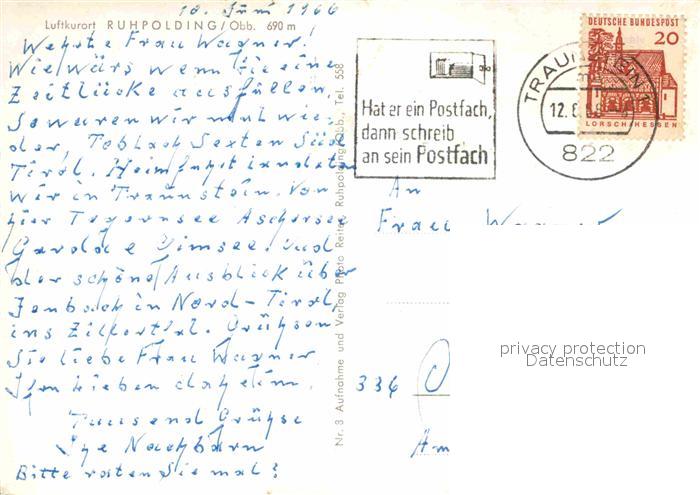 10. Juni 1966
Luftkurort RUHPOLDING / Obb. 690 m
Wehrte Frau Wagner!
Wie wärs wenn Sie eine
Zeitlücke ausfüllen.
So waren wir mal wie-
der, Toblach Sexten Süd
Tirol. Heimfahrt landeten
wir in Traunstein. Von
hier Tegernsee Achensee
Garda e Simsee. und
der schöne Ausblick über
Jenbach in Nord-Tirol,
ins Zillertal. Grüßsen
Sie liebe Frau Wagner
Ihren lieben daheim.
Tausend Grühse
Ihe Nachbarn
Bitte raten Sie mal!
Nr. 3 Aufnahme und Verlag Photo Reiter, Ruhpolding/Obb., Tel. 558
Hat er ein Postfach,
dann schreib
an sein Postfach
TRAUNSTEIN 1
12. 6. 66
822
DEUTSCHE BUNDESPOST
20
LORSCH/HESSEN
An
Frau Wagner
336
Am
privacy protection
Datenschutz